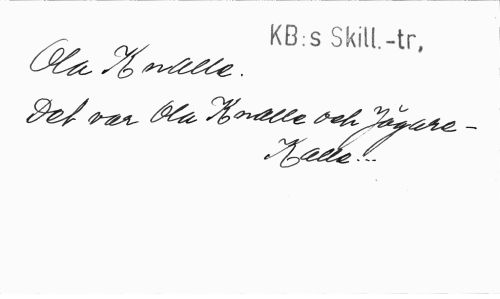 KB:s Skill.-tr,
Ola Knalle.
Det var Ola Knalle och Jägare-
Kalle...